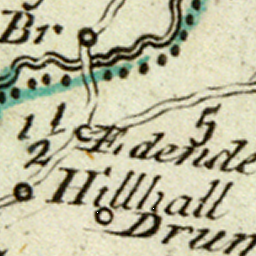 Br
1 1/2
5
Edende
Hillhall
Drum